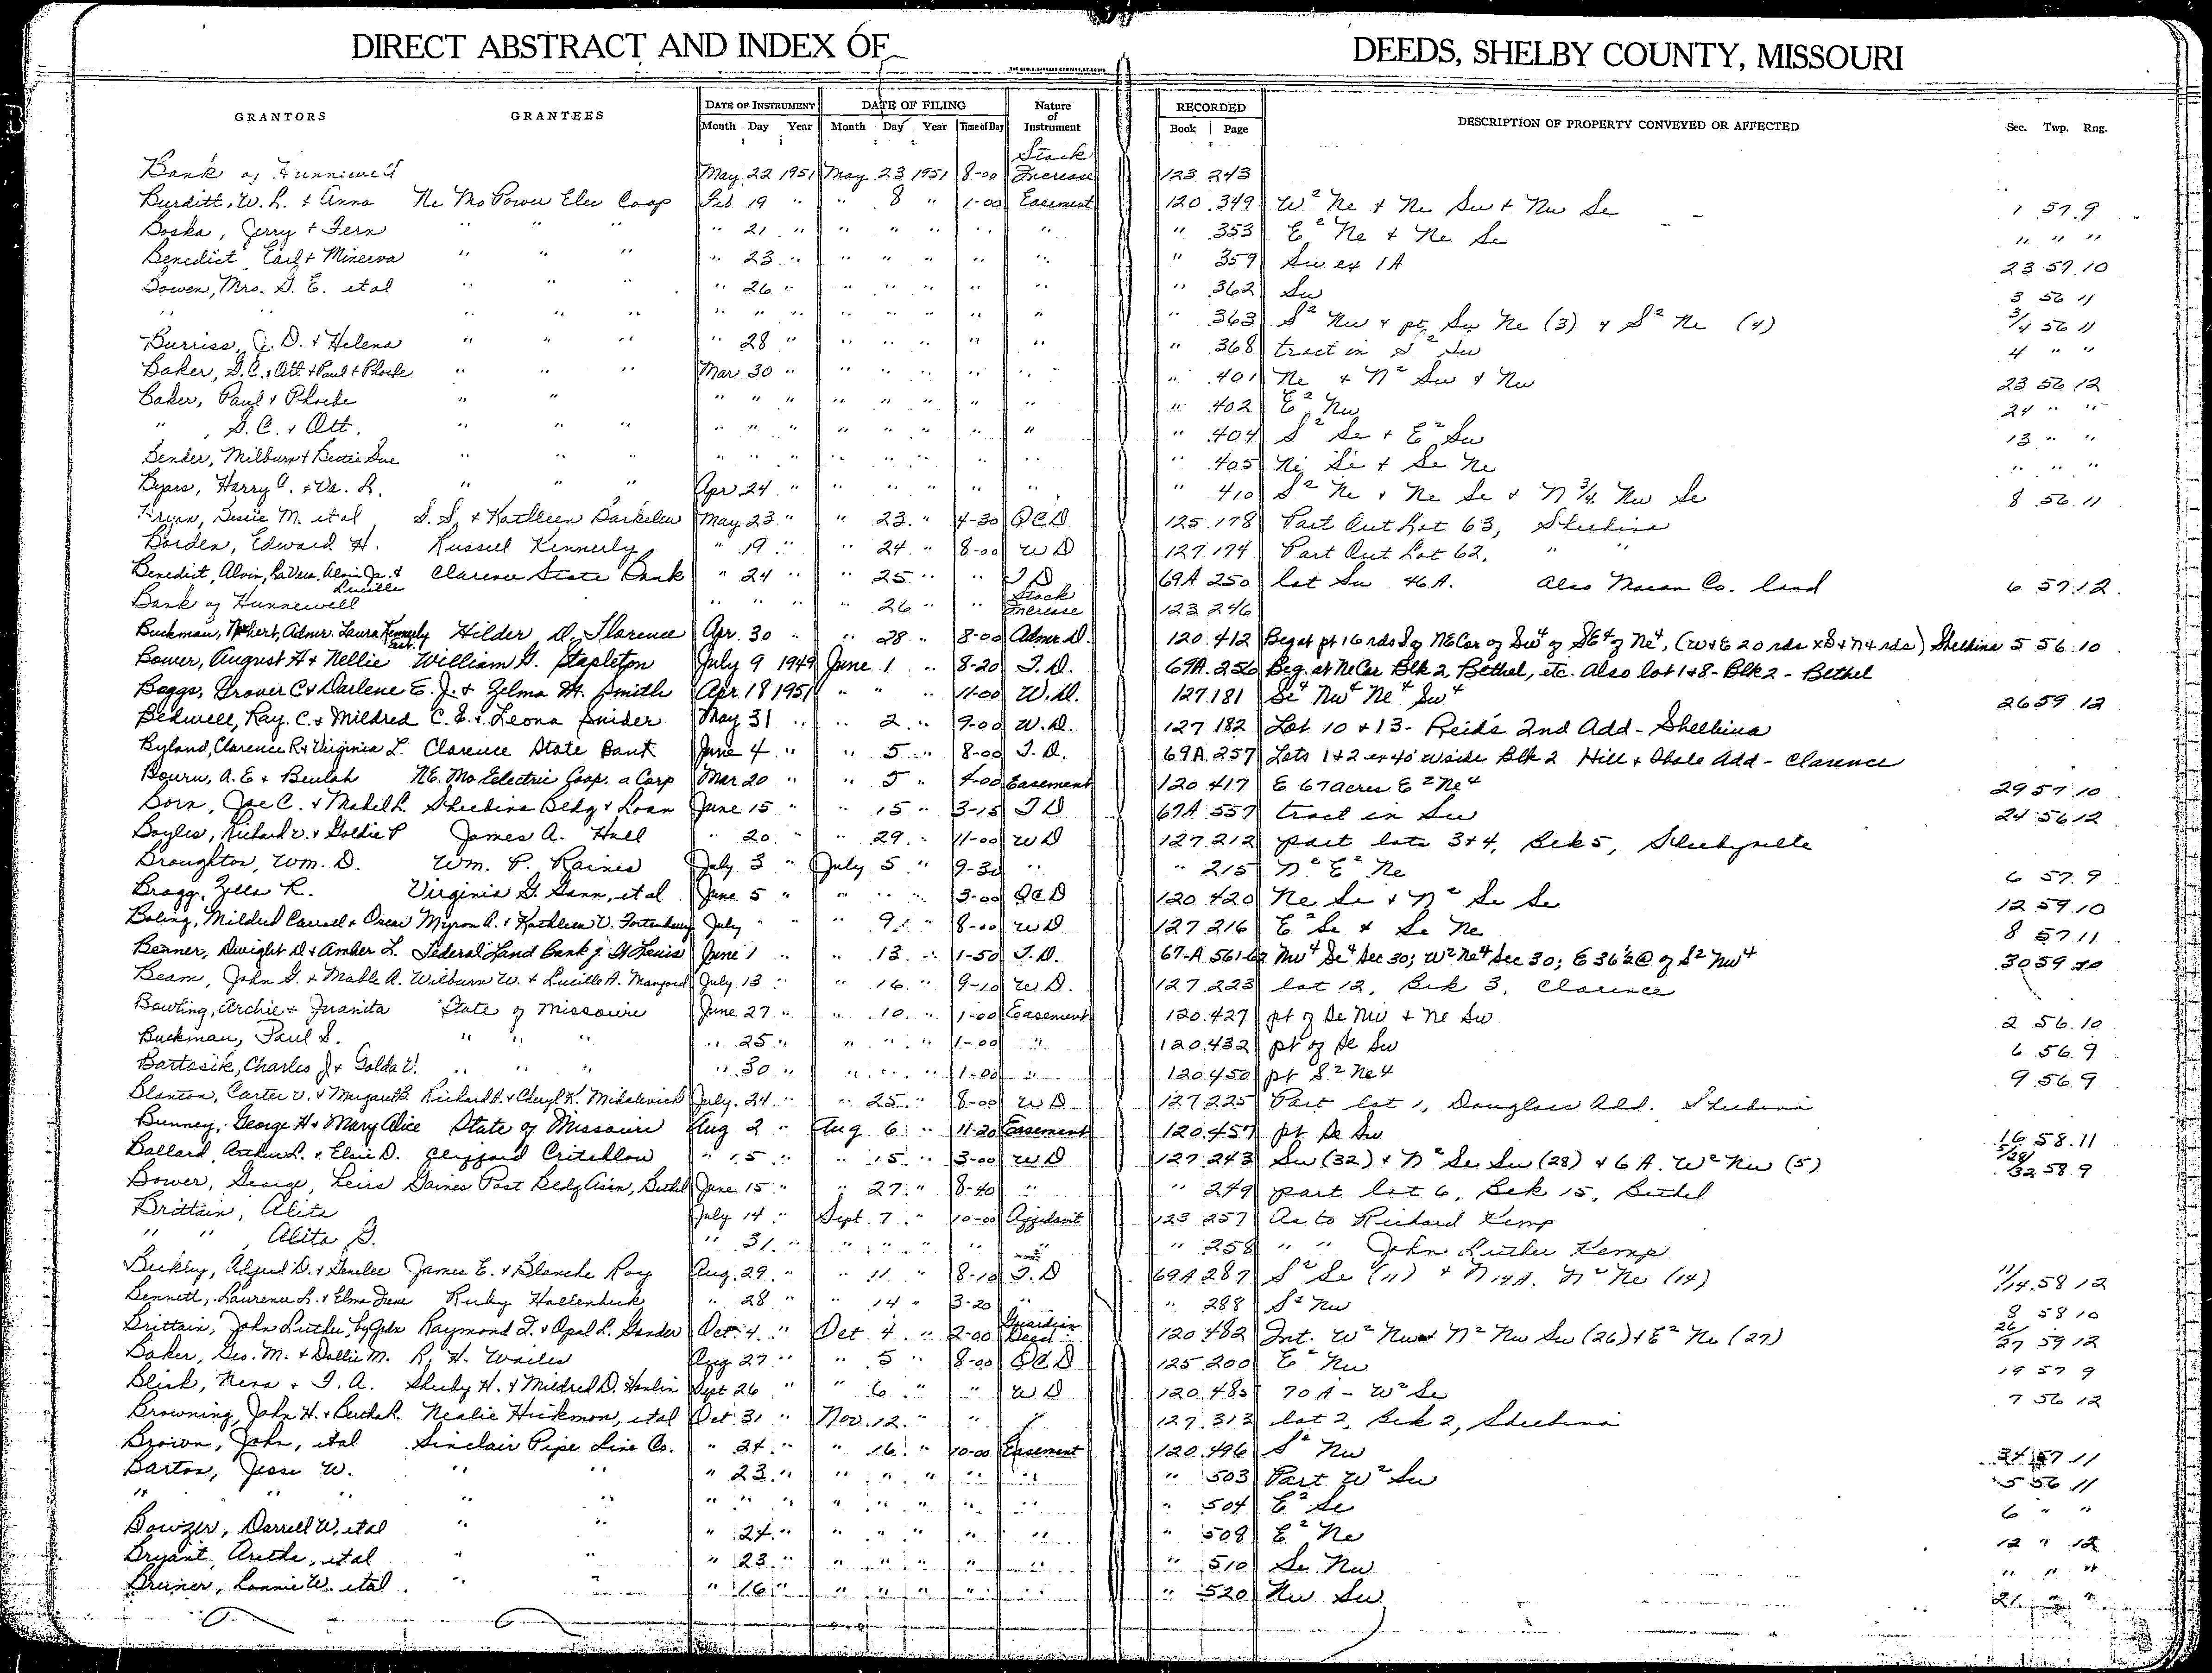 DIRECT ABSTRACT AND INDEX OF DEEDS, SHELBY COUNTY, MISSOURI
THE GEO. D. BARNARD COMPANY, ST. LOUIS
GRANTORS GRANTEES DATE OF INSTRUMENT DATE OF FILING Nature of Instrument RECORDED DESCRIPTION OF PROPERTY CONVEYED OR AFFECTED Sec. Twp. Rng.
Month Day Year Month Day Year Time of Day Book Page
Bank of Hunnewell May 22 1951 May 23 1951 8-00 Stock Increase 123 243
Burditt, W. L. & Anna Ne Mo Power Elec Coop Feb 19 " " 8 " 1-00 Easement 120 349 W² Ne & Ne Sw & Nw Se 1 57 9
Boska, Jerry & Fern " " " " 21 " " " " " " " 353 E² Ne & Ne Se " " "
Benedict, Earl & Minerva " " " " 23 " " " " " " " 359 Sw ex 1A 23 57 10
Bowen, Mrs. G. E. et al " " " " 26 " " " " " " " 362 Sw 3 56 11
" " " " " " " " " " " " " " 363 S² Nw & pt Sw Ne (3) & S² Ne (4) 3/4 56 11
Burriss, J. D. & Helena " " " " 28 " " " " " " " 368 tract in S² Sw 4 " "
Baker, S. C. & Ott & Paul & Phoebe " " " Mar 30 " " " " " " " 401 Ne & N² Sw & Nw 23 56 12
Baker, Paul & Phoebe " " " " " " " " " " " 402 E² Nw 24 " "
" , S. C. & Ott. " " " " " " " " " " " " 404 S² Se & E² Sw 13 " "
Bender, Milburn & Bettie Sue " " " " " " " " " " " " 405 Ne Se & Se Ne " " "
Byars, Harry C. & Va. L. " " " Apr 24 " " " " " " " 410 S² Ne & Ne Se & N 3/4 Nw Se 8 56 11
Bryan, Bessie M. et al S. S. & Kathleen Barkelew May 23 " " 23 " 4-30 QCD 125 178 Part Out Lot 63, Shelbina
Borden, Edward H. Russell Kennerly " 19 " " 24 " 8-00 WD 127 174 Part Out Lot 62, " "
Benedict, Alvin, LaVera, Alvin Jr. & Lucille Clarence State Bank " 24 " " 25 " " TD 69A 250 lot Sw 46A. Also Macon Co. land 6 57 12
Bank of Hunnewell " " " " 26 " " Stock Increase 123 246
Buckman, Norbert, Admr. Laura Kennerly est. Hilder D. Florence Apr. 30 " " 28 " 8-00 Admr D. 120 412 Beg at pt 16 rds S of NE Cor of Sw⁴ of SE⁴ of Ne⁴, (W & E 20 rds x S & N 4 rds) Shelbina 5 56 10
Bower, August H & Nellie William G. Stapleton July 9 1949 June 1 " 8-20 T.D. 69A 256 Beg. at Ne Cor Blk 2, Bethel, etc. Also lot 1 & 8 - Blk 2 - Bethel
Baggs, Grover C & Darlene E. J. & Zelma H. Smith Apr. 18 1951 " " " 11-00 W.D. 127 181 Se⁴ Nw⁴ Ne⁴ Sw⁴ 26 59 12
Bedwell, Ray. C. & Mildred C. E. & Leona Snider May 31 " " 2 " 9-00 W.D. 127 182 Lot 10 & 13 - Reid's 2nd Add - Shelbina
Byland, Clarence R & Virginia L. Clarence State Bank June 4 " " 5 " 8-00 T.D. 69A 257 Lots 1 & 2 ex 40' W side Blk 2 Hill & Add - Clarence
Bourn, A. E & Beulah N.E. Mo Electric Coop. a Corp Mar 20 " " 5 " 4-00 Easement 120 417 E 67 acres E² Ne⁴ 29 57 10
Born, Joe C. & Mabel L. Shelbina Bldg & Loan June 15 " " 15 " 3-15 TD 69A 557 tract in Sw 24 56 12
Boyles, Richard V. & Goldie P James A. Hall " 20 " " 29 " 11-00 WD 127 212 part lots 3 & 4, Blk 5, Shelbyville
Broughton, Wm. D. Wm. P. Raines July 3 " July 5 " 9-30 " " 215 N² E² Ne 6 57 9
Bragg, Zella R. Virginia G. Gann, et al June 5 " " " " 3-00 QCD 120 420 Ne Se & N² Se Se 12 59 10
Boling, Mildred Carroll & Oscar Myron A. & Kathleen V. Fortenbury July " " " 9 " 8-00 WD 127 216 E² Se & Se Ne 8 57 11
Beaner, Dwight D & Amber L. Federal Land Bank of St Louis June 1 " " 13 " 1-50 T.D. 67-A 561-62 Nw⁴ Se⁴ Sec 30; W² Ne⁴ Sec 30; E 36½ @ of S² Nw⁴ 30 59 10
Beam, John G. & Mable A. Wilburn W. & Lucille A. Manford July 13 " " 16 " 9-10 W.D. 127 223 lot 12, Blk 3, Clarence
Bowling, Archie & Juanita State of Missouri June 27 " " 10 " 1-00 Easement 120 427 pt of Se Nw & Ne Sw 2 56 10
Buckman, Paul S. " " " " 25 " " " " 1-00 " 120 432 pt of Se Sw 6 56 9
Bartosik, Charles J & Golda E. " " " " 30 " " " " 1-00 " 120 450 pt S² Ne⁴ 9 56 9
Blanton, Carter V. & Margaret B. Richard J. & Cheryl K. Mihalevich July 24 " " 25 " 8-00 WD 127 225 Part lot 1, Douglass Add. Shelbina
Bunney, George H & Mary Alice State of Missouri Aug 2 " Aug 6 " 11-20 Easement 120 457 pt Se Sw 16 58 11
Ballard, Arthur L. & Elsie D. Clifford Critchlow " 15 " " 15 " 3-00 WD 127 243 Sw (32) & N² Se Sw (28) & 6 A. W² Nw (5) 5/28/32 58 9
Bower, George, Leirs Gaines Post Bldg Assn, Bethel June 15 " " 27 " 8-40 " " 249 part lot 6, Blk 15, Bethel
Brittain, Alita July 14 " Sept. 7 " 10-00 Affidavit 123 257 As to Richard Kemp
" " , Alita G. " 31 " " " " " " " 258 " " John Luther Kemp
Buckley, Alfred D. & James E. & Blanche Roy Aug. 29 " " 11 " 8-10 T.D 69A 287 S² Se (11) & N 14A. N² Ne (14) 11/14 58 12
Bennett, Laurence L. & Elma Irene Ruby Hollenbeck " 28 " " 14 " 3-20 " " 288 S² Nw 8 58 10
Brittain, John Luther, by Gdn Raymond F. & Opal L. Gander Oct. 4 " Oct 4 " 2-00 Guardian Deed 120 482 Int. W² Nw & N² Nw Sw (26) & E² Ne (27) 26/27 59 12
Baker, Geo. M. & Dollie M. R. H. Wailes Aug 27 " " 5 " 8-00 QCD 125 200 E² Nw 19 57 9
Blick, Nena & T. A. Shelby H. & Mildred D. Hanlin Sept 26 " " 6 " " WD 120 485 70 A - W² Se 7 56 12
Browning, John H. & Bertha R. Nealie Hickmon, et al Oct. 31 " Nov. 12 " " " 127 313 lot 2, Blk 2, Shelbina
Brown, John, et al Sinclair Pipe Line Co. " 24 " " 16 " 10-00 Easement 120 496 S² Nw 34 57 11
Barton, Jesse W. " " " 23 " " " " " " " 503 Part W² Sw 5 56 11
" " " " " " " " " " " " " " 504 E² Se 6 " "
Bowzer, Darrell W. et al " " " 24 " " " " " " " 508 E² Ne 12 " 12
Bryant, Aretha, et al " " " 23 " " " " " " " 510 Se Nw " " "
Bruner, Lonnie W. et al " " " 16 " " " " " " " 520 Nw Sw 21 " "